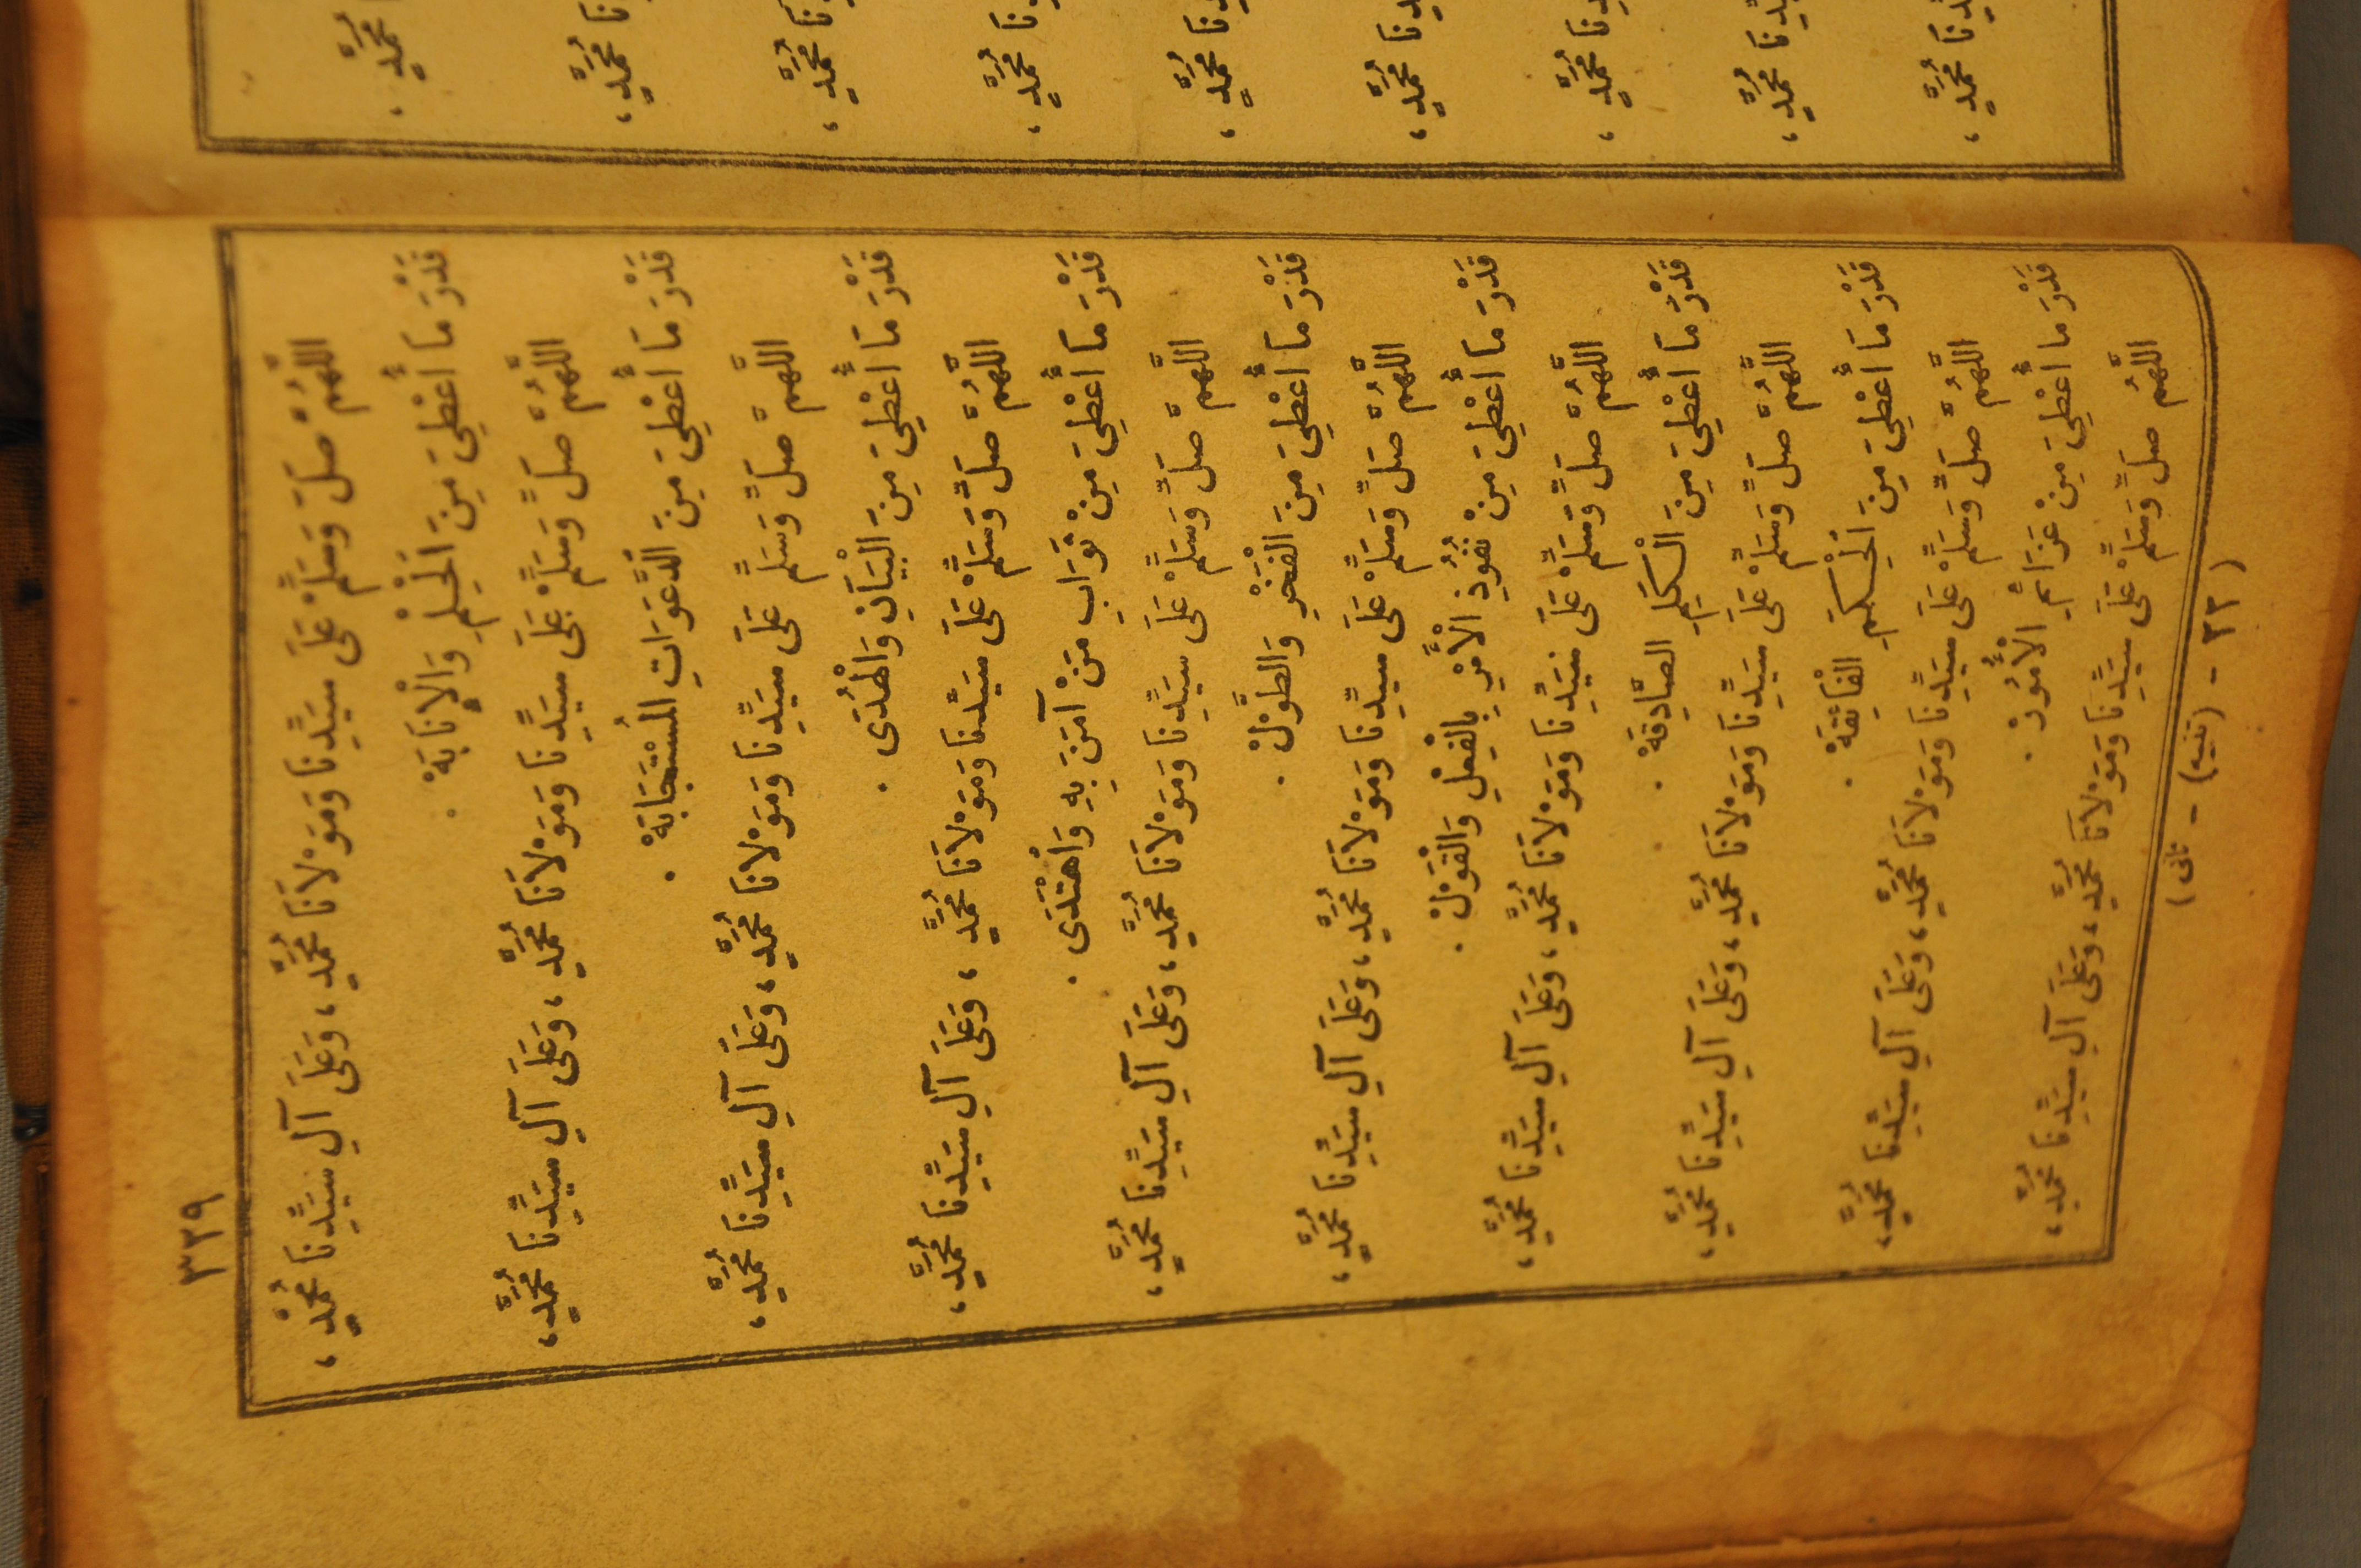 مُحَمَّدٍ ،
نَا مُحَمَّدٍ ،
نَا مُحَمَّدٍ ،
دِنَا مُحَمَّدٍ ،
دِنَا مُحَمَّدٍ ،
دِنَا مُحَمَّدٍ ،
دِنَا مُحَمَّدٍ ،
دِنَا مُحَمَّدٍ ،
دِنَا مُحَمَّدٍ ،
٣٣٩
اللَّهُمَّ صَلِّ وَسَلِّمْ عَلَى سَيِّدِنَا وَمَوْلاَنَا مُحَمَّدٍ ، وَعَلَى آلِ سَيِّدِنَا مُحَمَّدٍ ،
قَدْرَ مَا أُعْطِيَ مِنَ الْحِلْمِ وَالْإِنَابَةْ .
اللَّهُمَّ صَلِّ وَسَلِّمْ عَلَى سَيِّدِنَا وَمَوْلاَنَا مُحَمَّدٍ ، وَعَلَى آلِ سَيِّدِنَا مُحَمَّدٍ ،
قَدْرَ مَا أُعْطِيَ مِنَ الدَّعَوَاتِ الْمُسْتَجَابَةْ .
اللَّهُمَّ صَلِّ وَسَلِّمْ عَلَى سَيِّدِنَا وَمَوْلاَنَا مُحَمَّدٍ ، وَعَلَى آلِ سَيِّدِنَا مُحَمَّدٍ ،
قَدْرَ مَا أُعْطِيَ مِنَ الْبَيَانِ وَالْهُدَى .
اللَّهُمَّ صَلِّ وَسَلِّمْ عَلَى سَيِّدِنَا وَمَوْلاَنَا مُحَمَّدٍ ، وَعَلَى آلِ سَيِّدِنَا مُحَمَّدٍ ،
قَدْرَ مَا أُعْطِيَ مِنْ ثَوَابِ مَنْ آمَنَ بِهِ وَاهْتَدَى .
اللَّهُمَّ صَلِّ وَسَلِّمْ عَلَى سَيِّدِنَا وَمَوْلاَنَا مُحَمَّدٍ ، وَعَلَى آلِ سَيِّدِنَا مُحَمَّدٍ ،
قَدْرَ مَا أُعْطِيَ مِنَ الْفَخْرِ وَالطَّوْلْ .
اللَّهُمَّ صَلِّ وَسَلِّمْ عَلَى سَيِّدِنَا وَمَوْلاَنَا مُحَمَّدٍ ، وَعَلَى آلِ سَيِّدِنَا مُحَمَّدٍ ،
قَدْرَ مَا أُعْطِيَ مِنْ نُفُوذِ الْأَمْرِ بِالْفِعْلِ وَالْقَوْلْ .
اللَّهُمَّ صَلِّ وَسَلِّمْ عَلَى سَيِّدِنَا وَمَوْلاَنَا مُحَمَّدٍ ، وَعَلَى آلِ سَيِّدِنَا مُحَمَّدٍ ،
قَدْرَ مَا أُعْطِيَ مِنَ الْكَلِمِ الصَّادِقَةْ .
اللَّهُمَّ صَلِّ وَسَلِّمْ عَلَى سَيِّدِنَا وَمَوْلاَنَا مُحَمَّدٍ ، وَعَلَى آلِ سَيِّدِنَا مُحَمَّدٍ ،
قَدْرَ مَا أُعْطِيَ مِنَ الْحِكَمِ الْفَائِقَةْ .
اللَّهُمَّ صَلِّ وَسَلِّمْ عَلَى سَيِّدِنَا وَمَوْلاَنَا مُحَمَّدٍ ، وَعَلَى آلِ سَيِّدِنَا مُحَمَّدٍ ،
قَدْرَ مَا أُعْطِيَ مِنْ عَزَائِمِ الْأُمُورْ .
اللَّهُمَّ صَلِّ وَسَلِّمْ عَلَى سَيِّدِنَا وَمَوْلاَنَا مُحَمَّدٍ ، وَعَلَى آلِ سَيِّدِنَا مُحَمَّدٍ ،
( ٢٢ - ( تنبيه ) - ثانى )